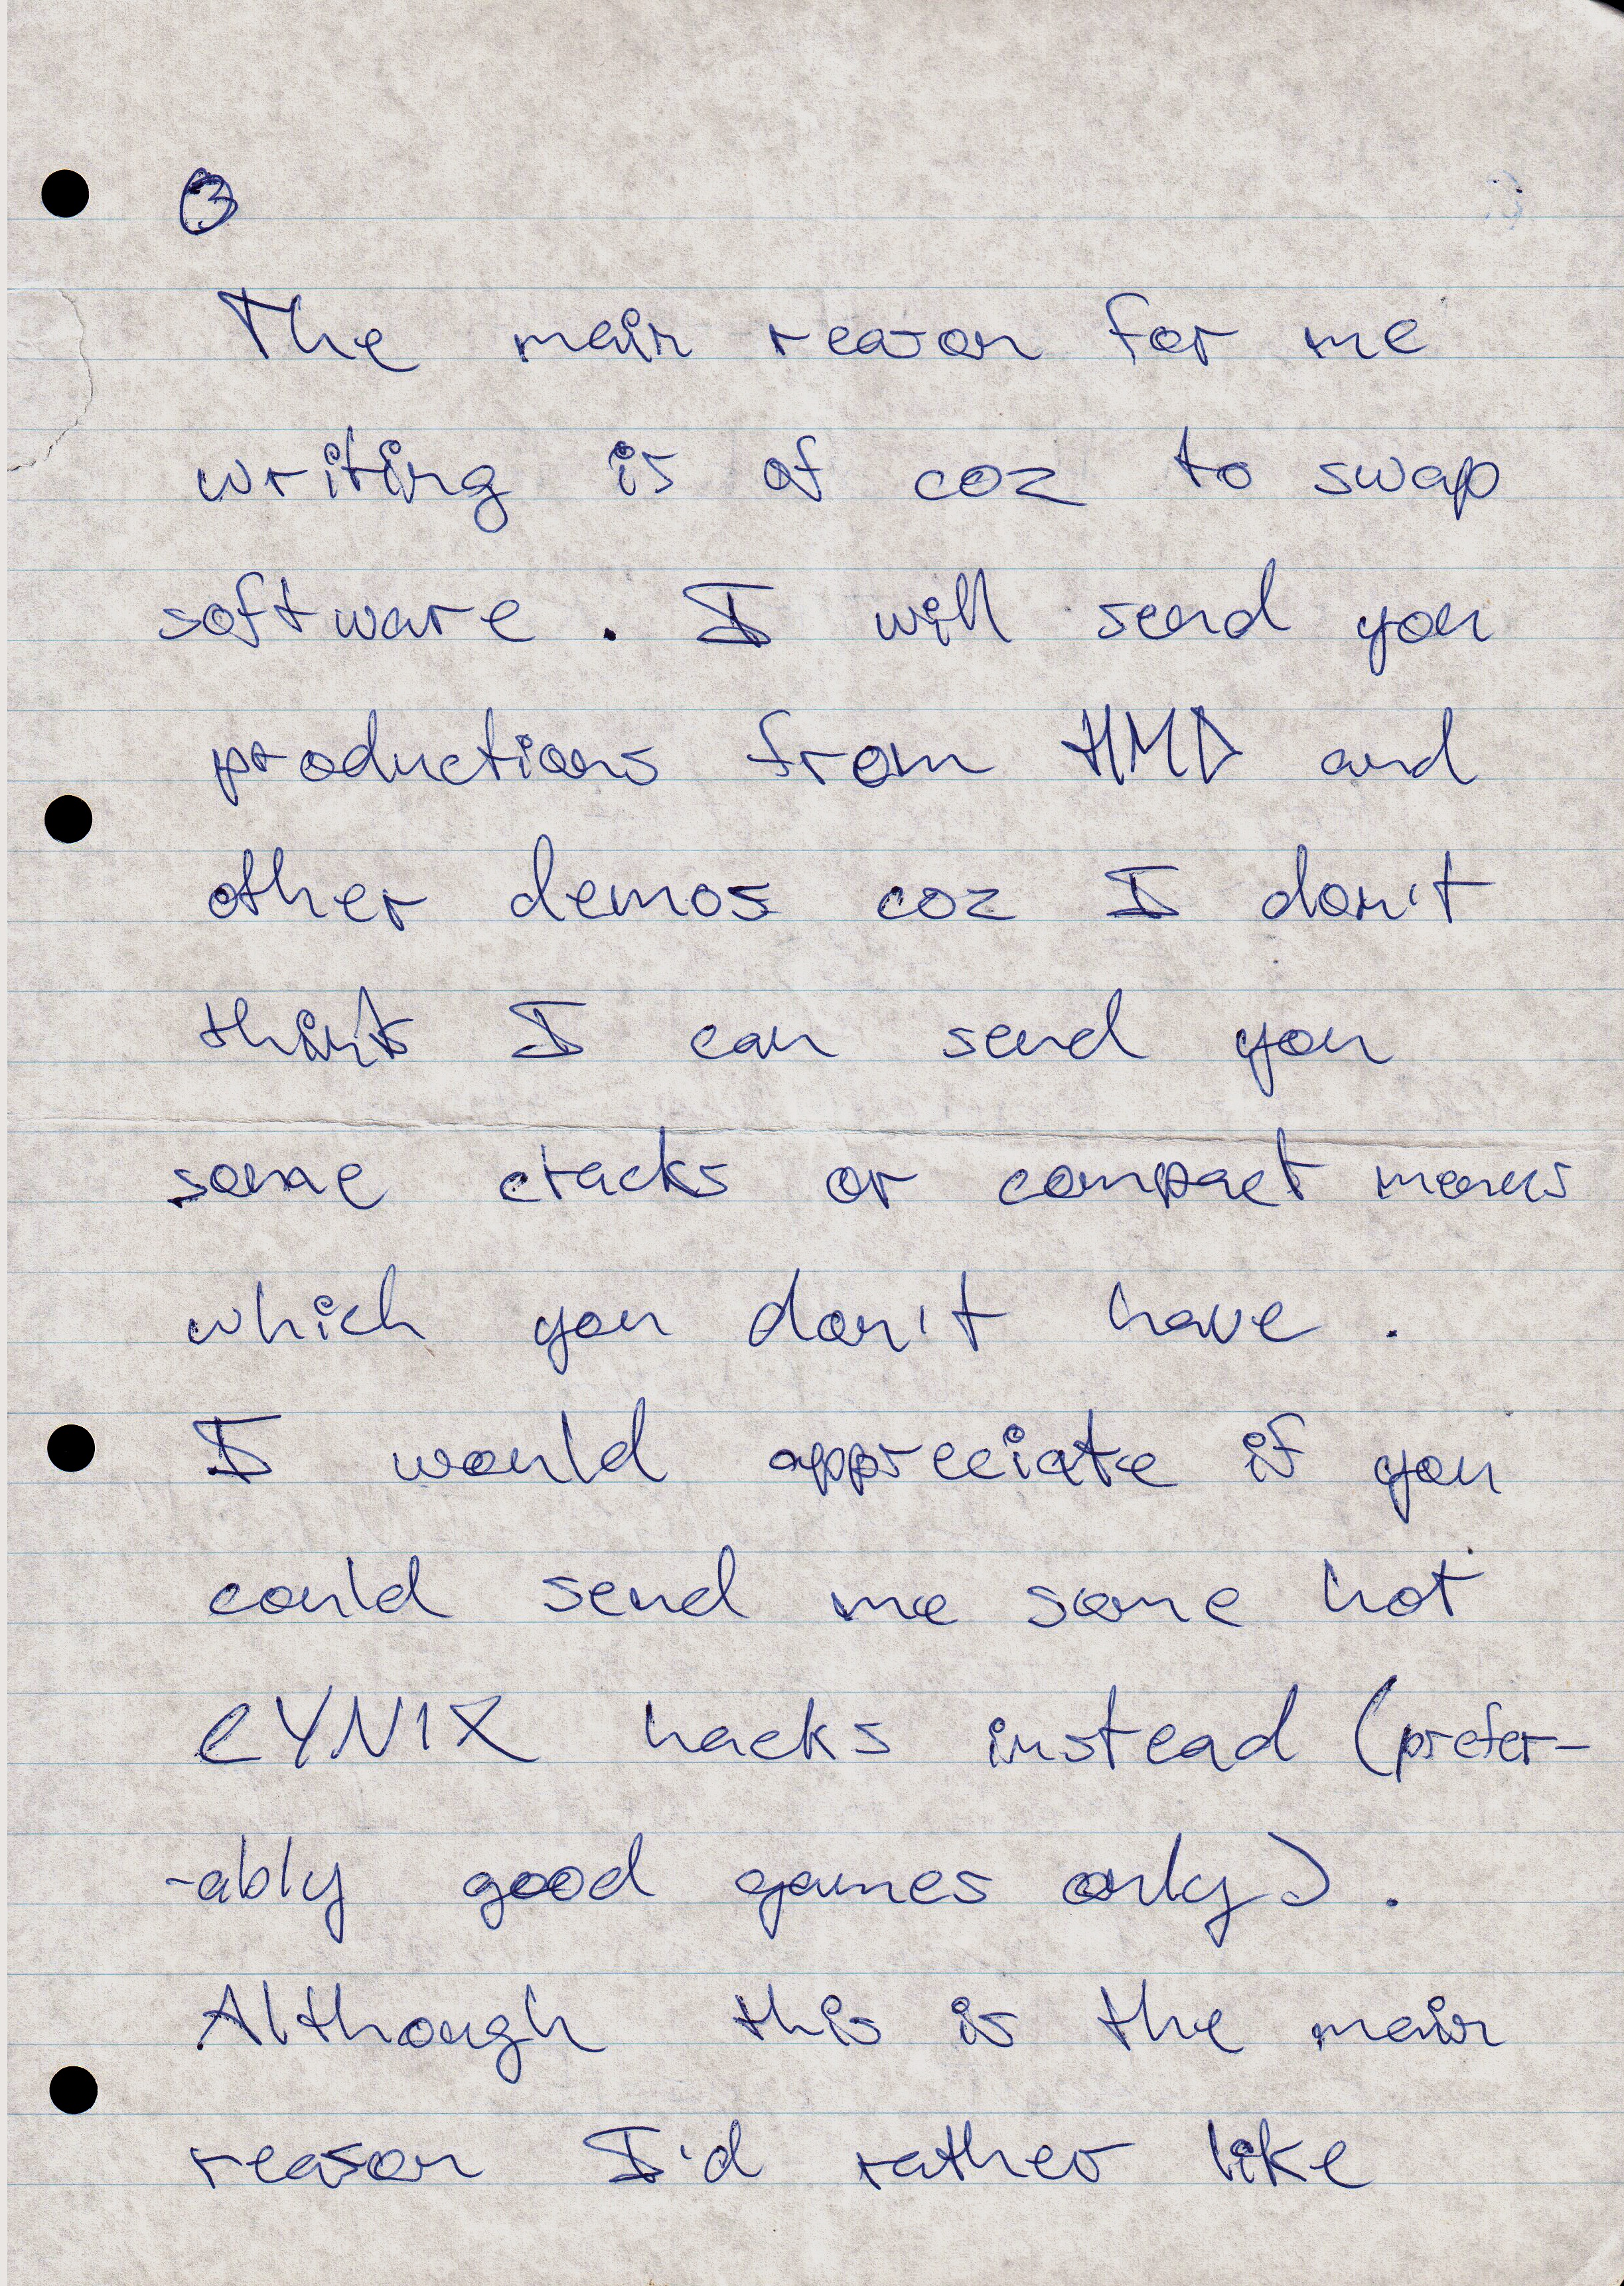 3
The main reason for me
writing is of coz to swap
software. I will send you
productions from HMD and
other demos coz I don't
think I can send you
some cracks or compact menus
which you don't have.
I would appreciate if you
could send me some hot
CYNIX hacks instead (prefer-
-ably good games only).
Although this is the main
reason I'd rather like